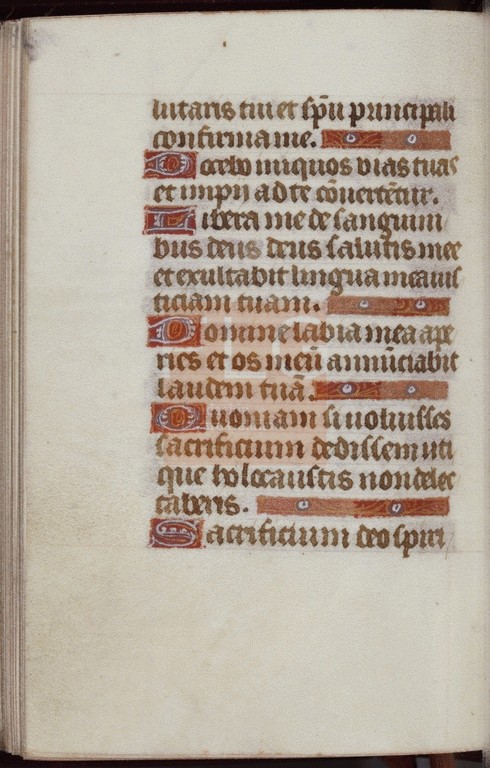 lutaris tui et sp̄u principali
confirma me.
Docebo iniquos vias tuas
et impij ad te cōuertētur.
Libera me de sanguini
bus deus deus salutis mee
et exultabit lingua mea iuſ
ticiam tuam.
Domine labia mea ape
ries et os meū annūciabit
laudem tuā.
Quoniam si voluisses
sacrificium dedissem uti
que holocaustis non delec
taberis.
Sacrificium deo spiri